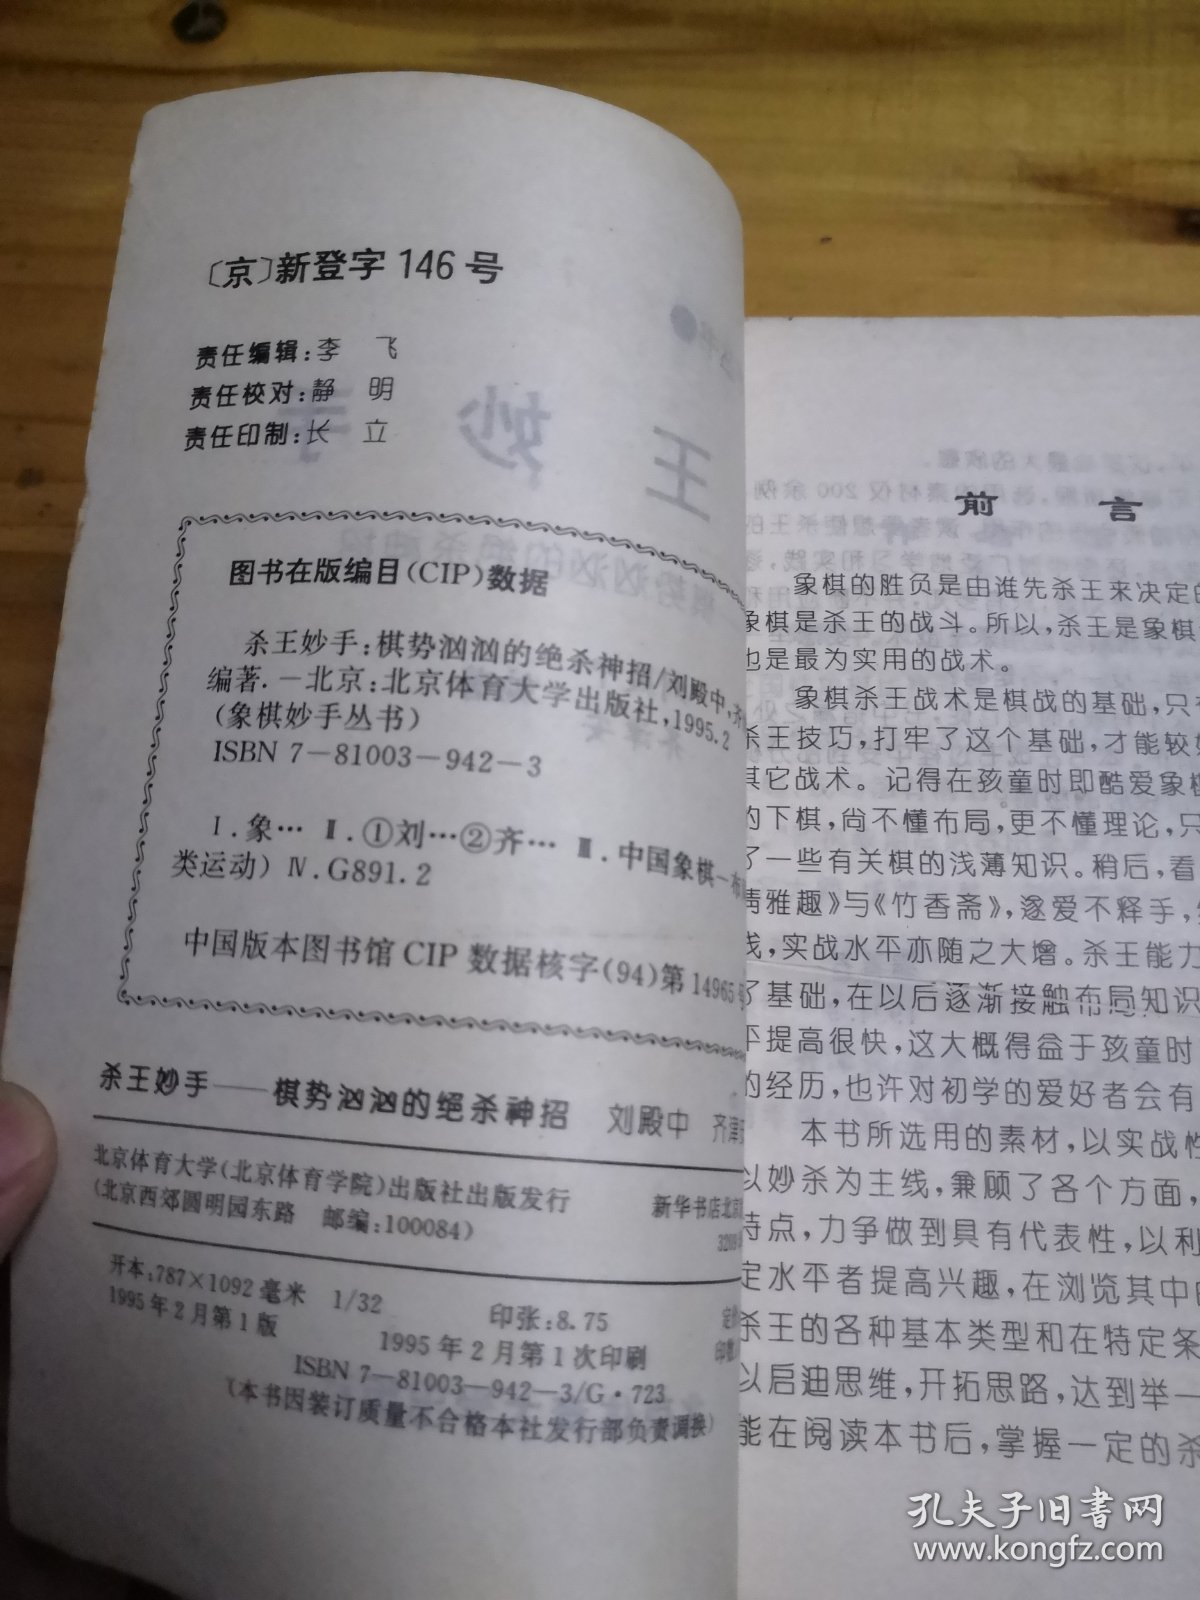 〔京〕新登字 146 号
责任编辑:李 飞
责任校对:静 明
责任印制:长 立
图书在版编目(CIP)数据
杀王妙手:棋势汹汹的绝杀神招/刘殿中,齐
编著.—北京:北京体育大学出版社,1995.2
(象棋妙手丛书)
ISBN 7-81003-942-3
Ⅰ.象… Ⅱ.①刘…②齐… Ⅲ.中国象棋-布
类运动) Ⅳ.G891.2
中国版本图书馆 CIP 数据核字(94)第 14965
杀王妙手——棋势汹汹的绝杀神招 刘殿中 齐津
北京体育大学(北京体育学院)出版社出版发行
(北京西郊圆明园东路 邮编:100084)
新华书店北京
开本:787×1092 毫米 1/32 印张:8.75
1995 年 2 月第 1 版 1995 年 2 月第 1 次印刷
ISBN 7-81003-942-3/G·723
(本书因装订质量不合格本社发行部负责调换)
前 言
象棋的胜负是由谁先杀王来决定的
象棋是杀王的战斗。所以,杀王是象棋
也是最为实用的战术。
象棋杀王战术是棋战的基础,只有
杀王技巧,打牢了这个基础,才能较好
其它战术。记得在孩童时即酷爱象棋
的下棋,尚不懂布局,更不懂理论,只
了一些有关棋的浅薄知识。稍后,看
情雅趣》与《竹香斋》,逐爱不释手,
浅,实战水平亦随之大增。杀王能力
了基础,在以后逐渐接触布局知识
平提高很快,这大概得益于孩童时
的经历,也许对初学的爱好者会有
本书所选用的素材,以实战性
以妙杀为主线,兼顾了各个方面,
特点,力争做到具有代表性,以利
定水平者提高兴趣,在浏览其中的
杀王的各种基本类型和在特定条
以启迪思维,开拓思路,达到举一
能在阅读本书后,掌握一定的杀
孔夫子旧书网
www.kongfz.com